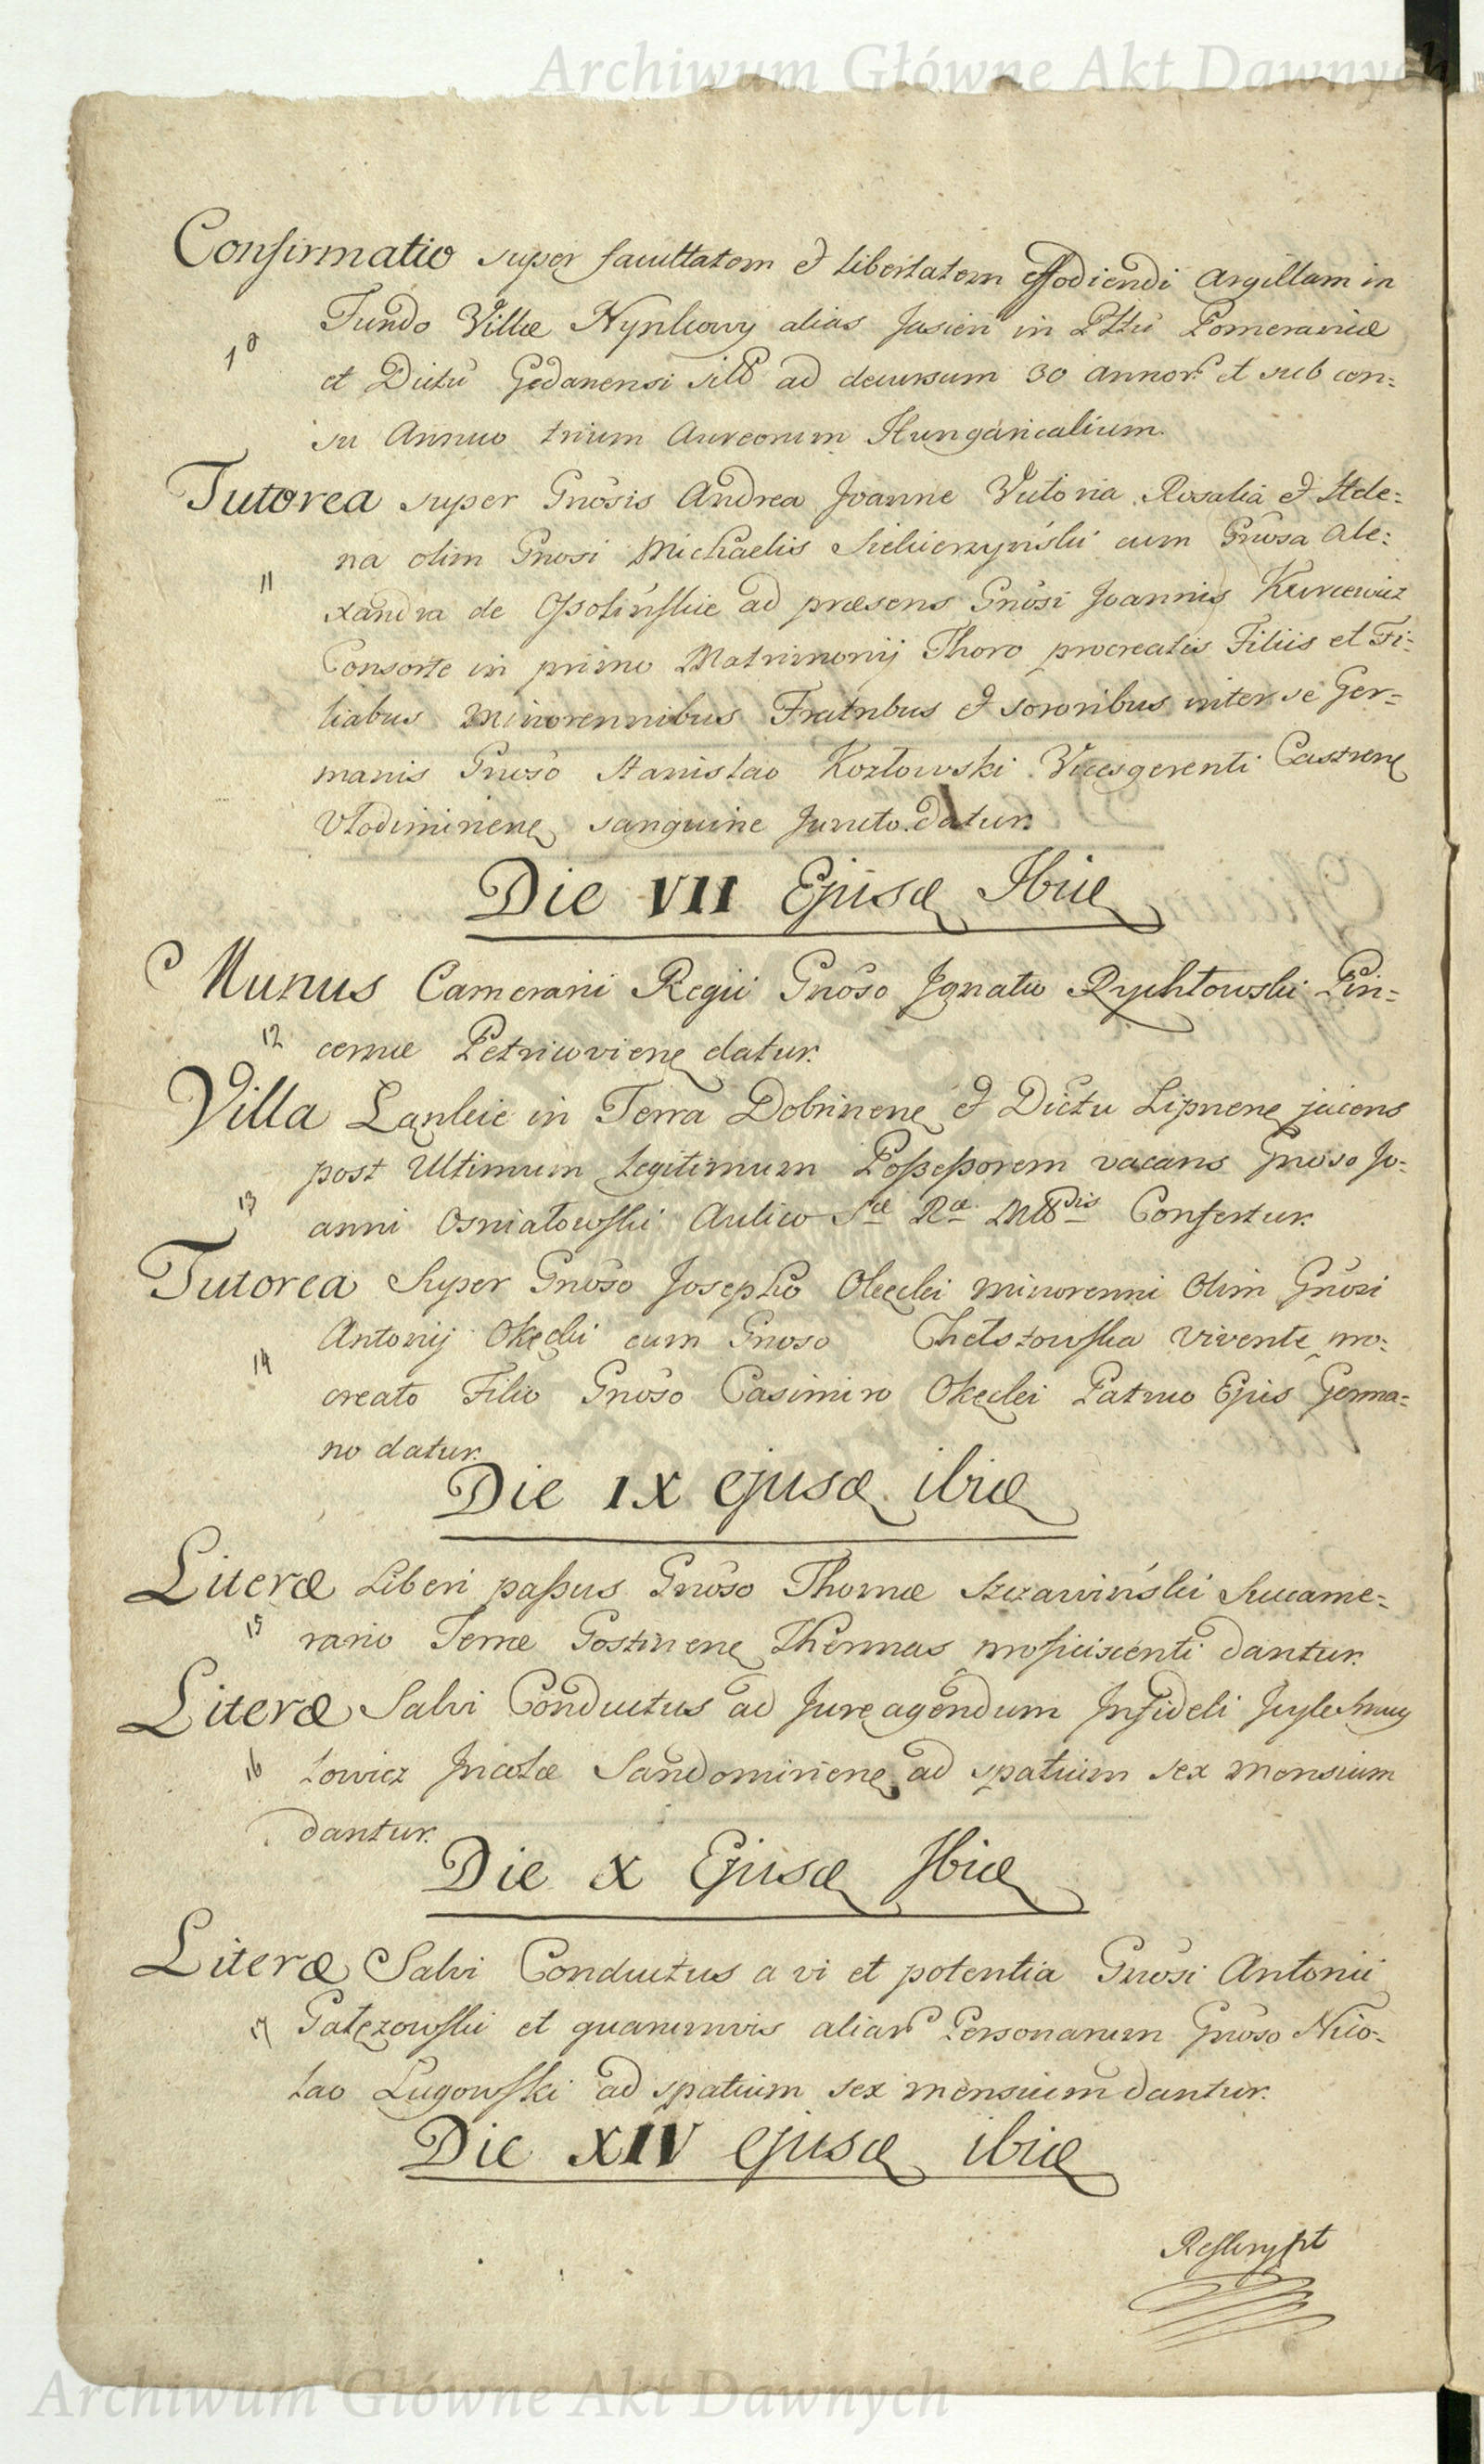 Archiwum Główne Akt Dawnych
Confirmatio super facultatem et libertatem effodiendi Argillam in
Fundo Villæ Nynkowy alias Jasień in Pttu Pomeraniæ
10
et Dictu Gedanensi sito ad decursum 30 annor et sub cen=
su Annuo trium Aureorum Hungaricalium.
Tutorea super Gnosis Andrea Joanne Victoria Rosalia et Hele=
na olim Gnosi Michaelis Siekierzyński cum Gnosa Ale=
11
xandra de Ossolińskie ad præsens Gnosi Joannis Kurcewicz
Consorte in primo Matrimonij Thoro procreatis Filiis et Fi=
liabus Minorennibus Fratribus et sororibus inter se Ger=
manis Gnoso Stanislao Kozłowski Vicesgerenti Castren
Vlodimirien sanguine Juncto datur.
Die VII Ejusd Ibid
Munus Camerarii Regii Gnoso Ignatio Rychłowski Pin=
12 cernæ Petricovien datur.
Villa Lankie in Terra Dobrinen et Dictu Lipnen jacens
post Ultimum legitimum Possessorem vacans Gnoso Jo=
13
anni Osniałowski Aulico Sæ Ræ Mttis Confertur.
Tutorea Super Gnoso Josepho Okęcki minorenni Olim Gnosi
Antonij Okęcki cum Gnoso Chełstowska vivente pro=
14
creato Filio Gnoso Casimiro Okęcki Patruo Ejus Germa=
no datur.
Die IX ejusd ibid
Literæ Liberi passus Gnoso Thomæ Szczawiński Succame=
15 rario Terræ Gostinen Thermas proficiscenti dantur.
Literæ Salvi Conductus ad Jure agendum Infideli
16 lowicz Incolæ Sandomirien ad spatium sex mensium
dantur.
Die X Ejusd Ibid
Literæ Salvi Conductus a vi et potentia Gnosi Antonii
17 Gałęzowski et quarumvis aliar Personarum Gnoso Nico=
lao Ługowski ad spatium sex mensium dantur.
Die XIV ejusd ibid
Reskrypt
Archiwum Główne Akt Dawnych